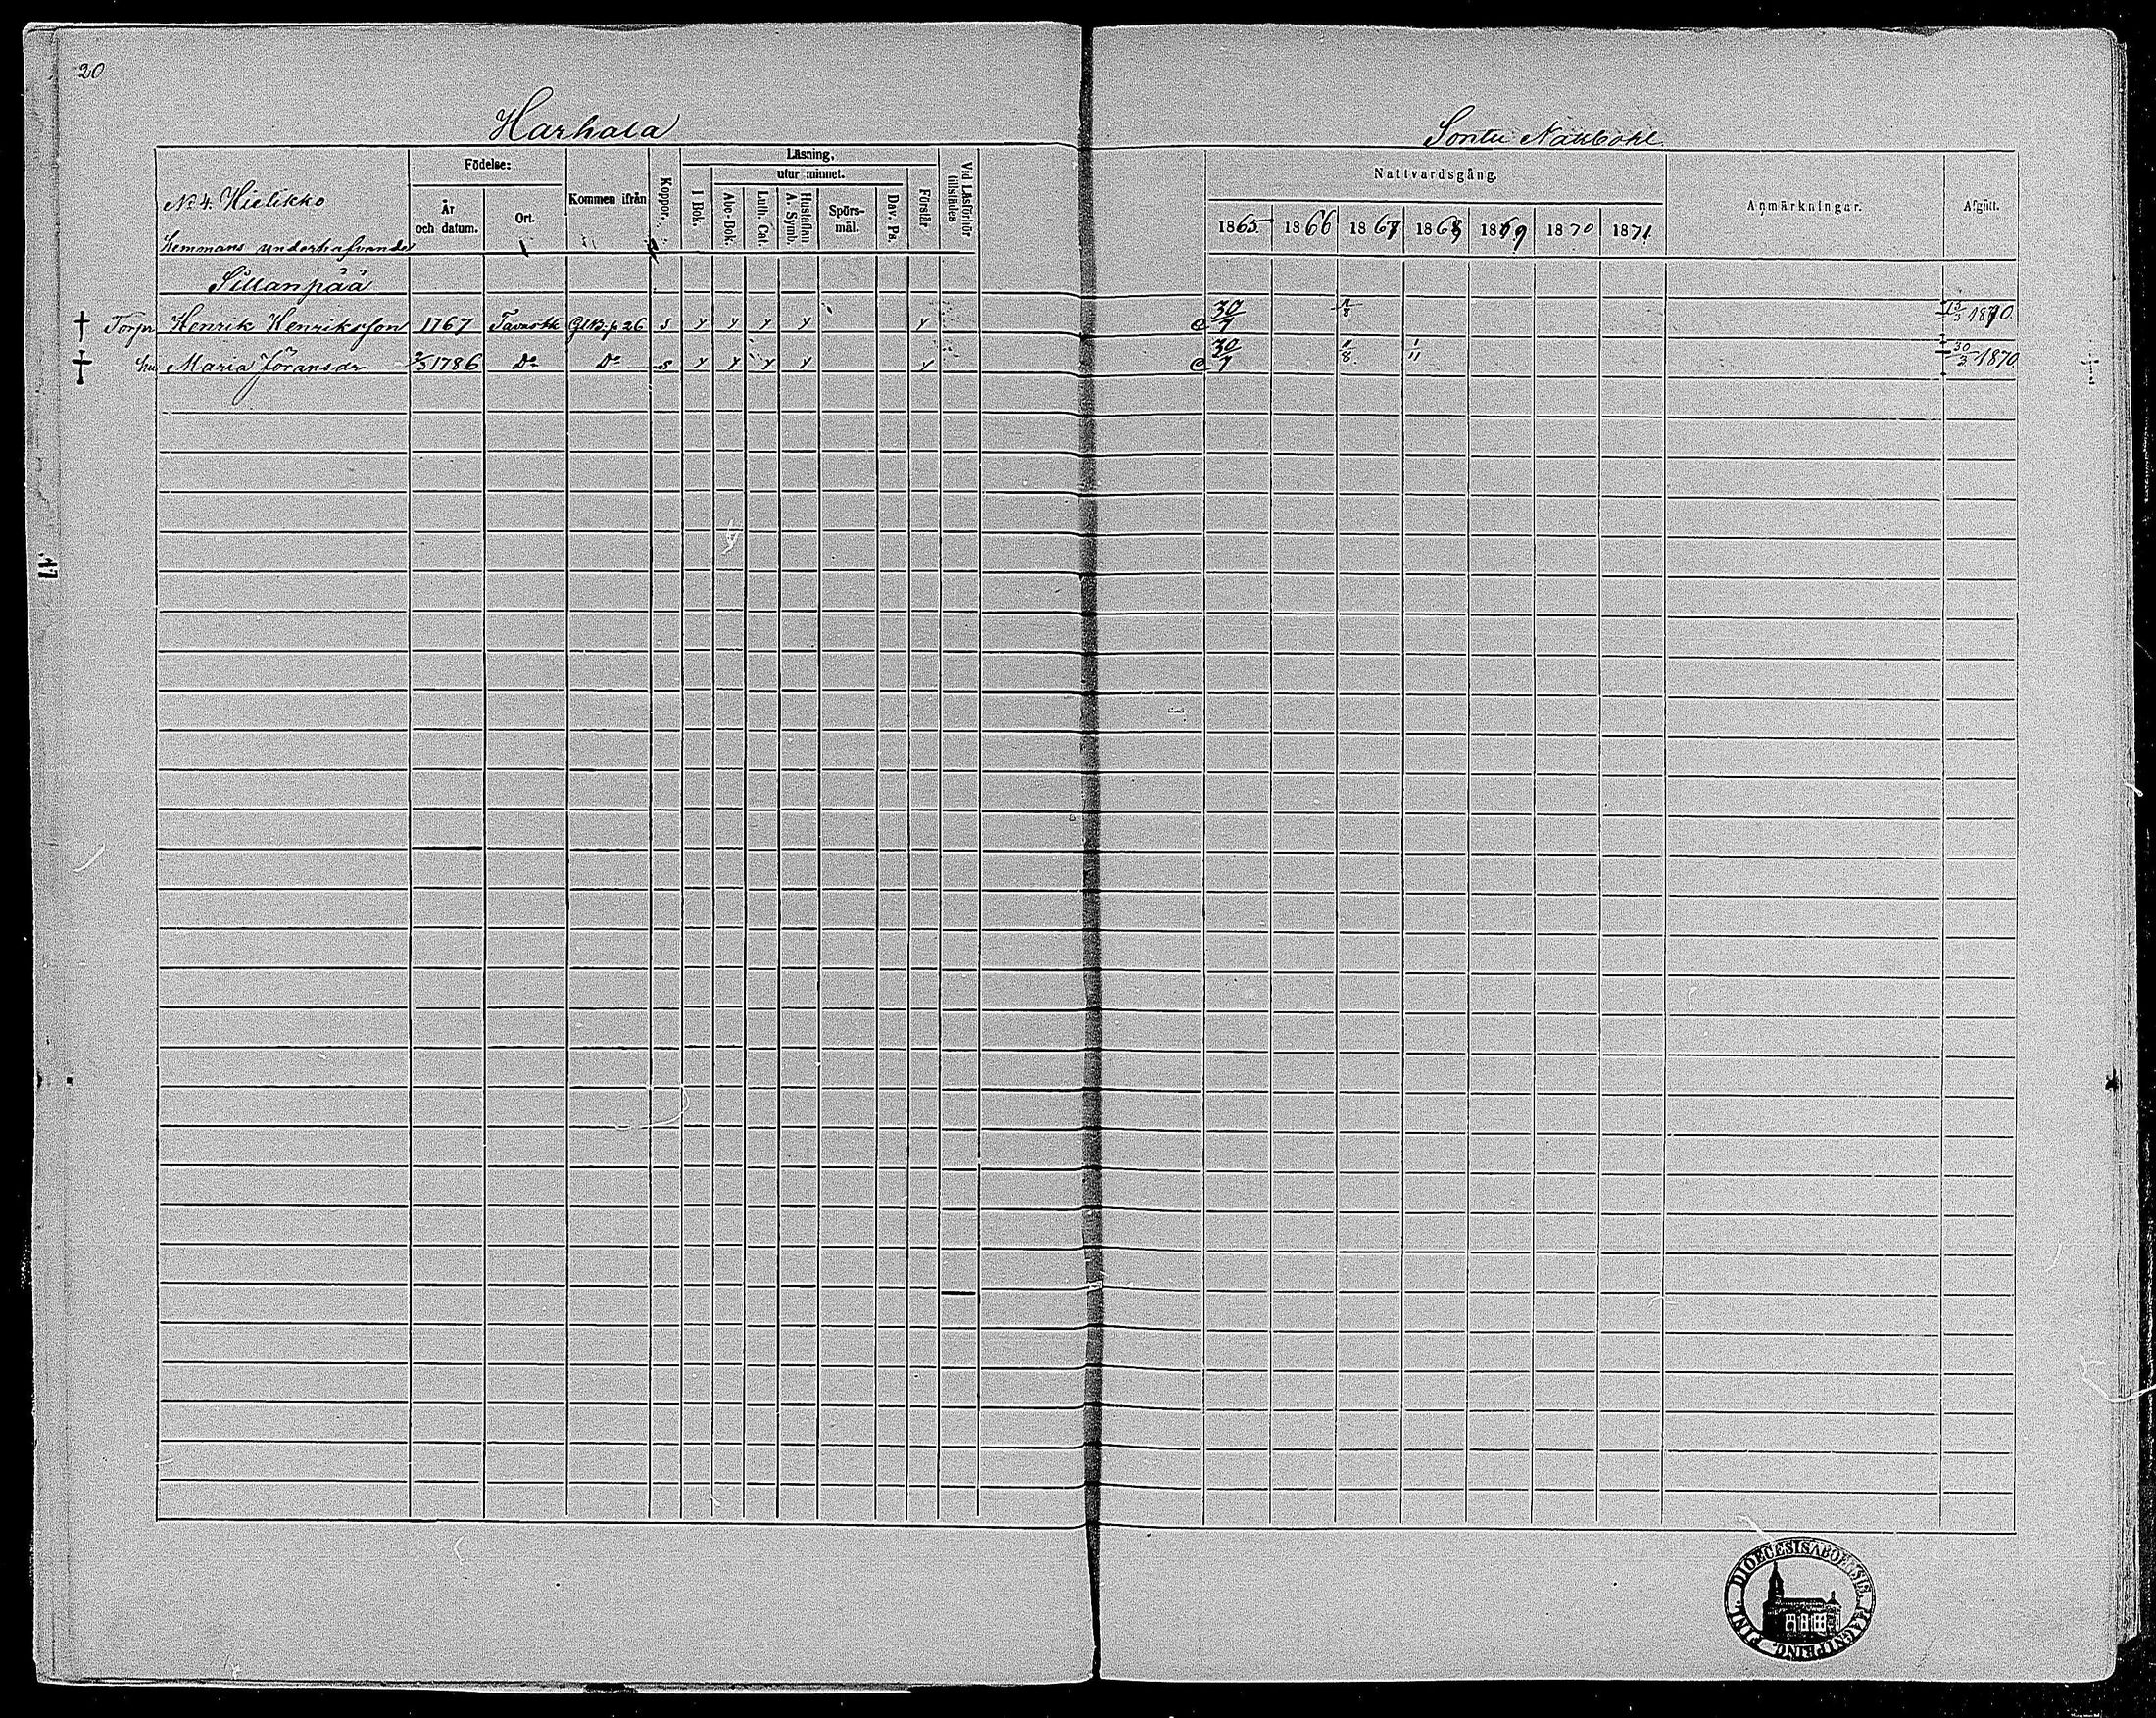 20
Harhala
Sontu Nattbohl
Födelse: Läsning.
utur minnet.
Nattvardsgång.
No 4. Hielikko
År och datum. Ort. Kommen ifrån Koppor. I Bok. Abc-Bok. Luth. Cat. Hustaflan A. Symb. Spörsmål. Dav. Ps. Förstår Vid Läsförhör tillstädes
1865 1866 1867 1868 1869 1870 1871 Anmärkningar. Afgått.
hemmans underhafvande
Sillanpää
† Torpr Henrik Henriksson 1767 Tavastk Gl.B.p 26 s y y y y y 30/7 /8 † 13/3 1870.
† hu Maria Jöransdr 2/3 1786 Do Do s y y y y y 30/7 /8 1/11 † 30/3 1870
47
FINL. DIOECESIS ABOENSIS. MAGNI PRINC.